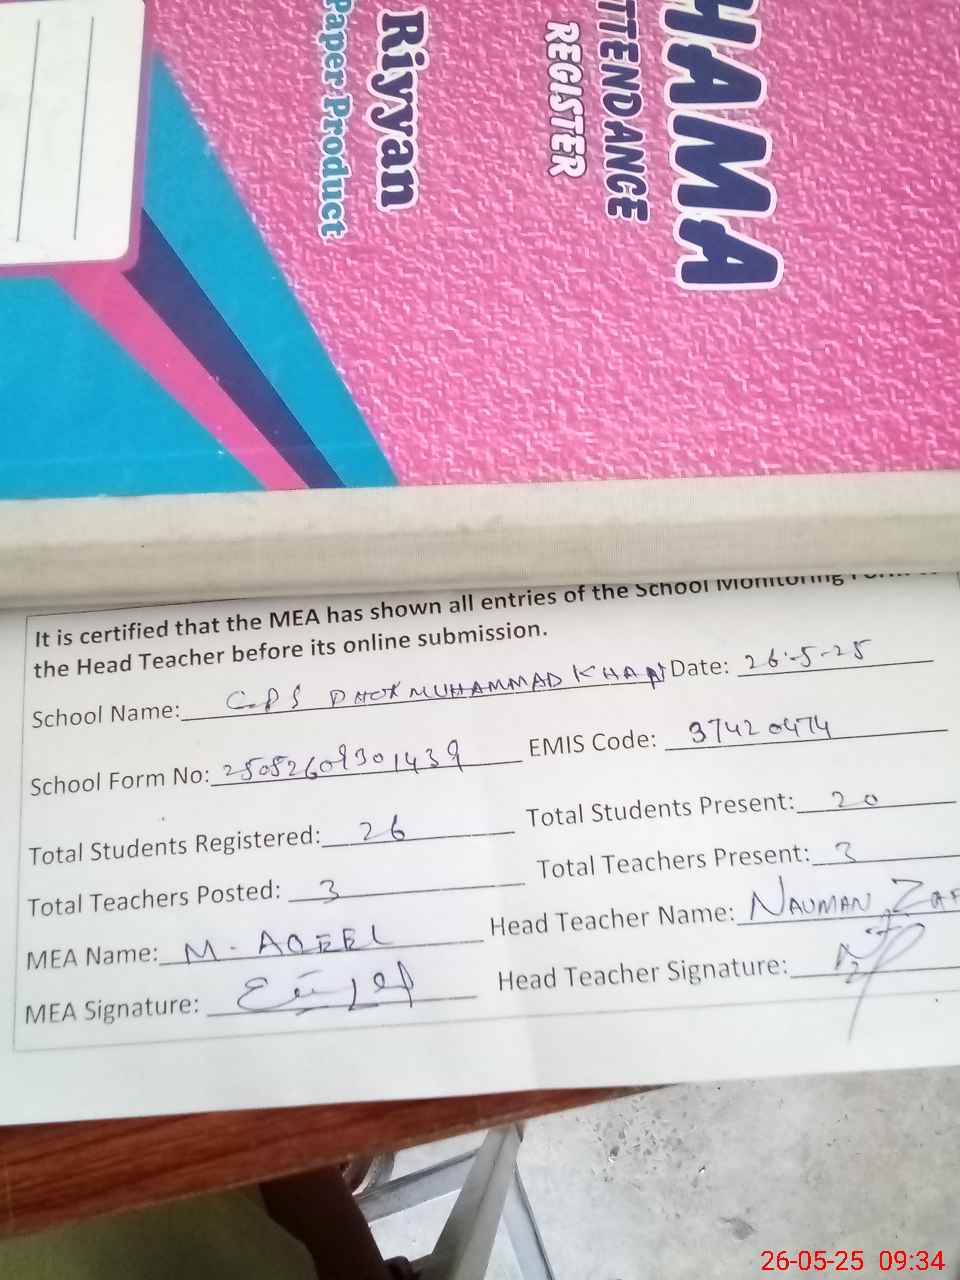 HAMA
TTENDANCE
REGISTER
Riyyan
Paper Product
It is certified that the MEA has shown all entries of the School Monitoring
the Head Teacher before its online submission.
School Name: GPS DHOK MUHAMMAD KHAN Date: 26-5-25
School Form No: 25052609301439 EMIS Code: 37420474
Total Students Registered: 26 Total Students Present: 20
Total Teachers Posted: 3 Total Teachers Present: 3
MEA Name: M. AQEEL Head Teacher Name: NAUMAN ZAF
MEA Signature: Head Teacher Signature:
26-05-25 09:34